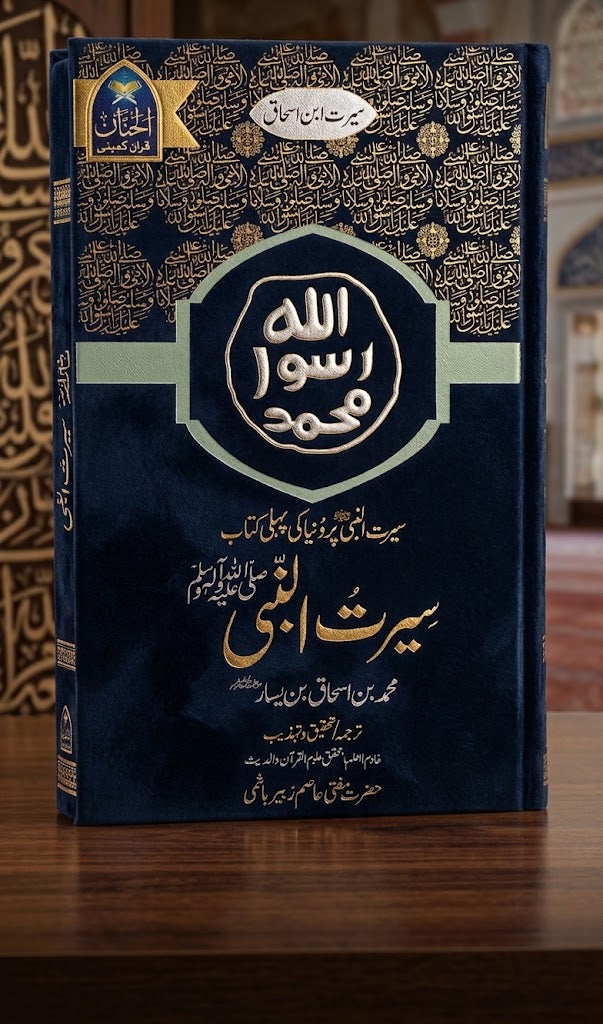 الحنان
قرآن کمپنی
سیرت ابن اسحاق
الله
رسول
محمد
سیرت النبی ﷺ پر دُنیا کی پہلی کتاب
صلی اللہ علیہ وآلہ وسلم
سیرتُ النّبی
محمد بن اسحاق بن یسار
ترجمہ/تحقیق و تہذیب
خادم العلم، محقق علوم القرآن والحدیث
حضرت مفتی عاصم زبیر ہاشمی
سیرت النبی